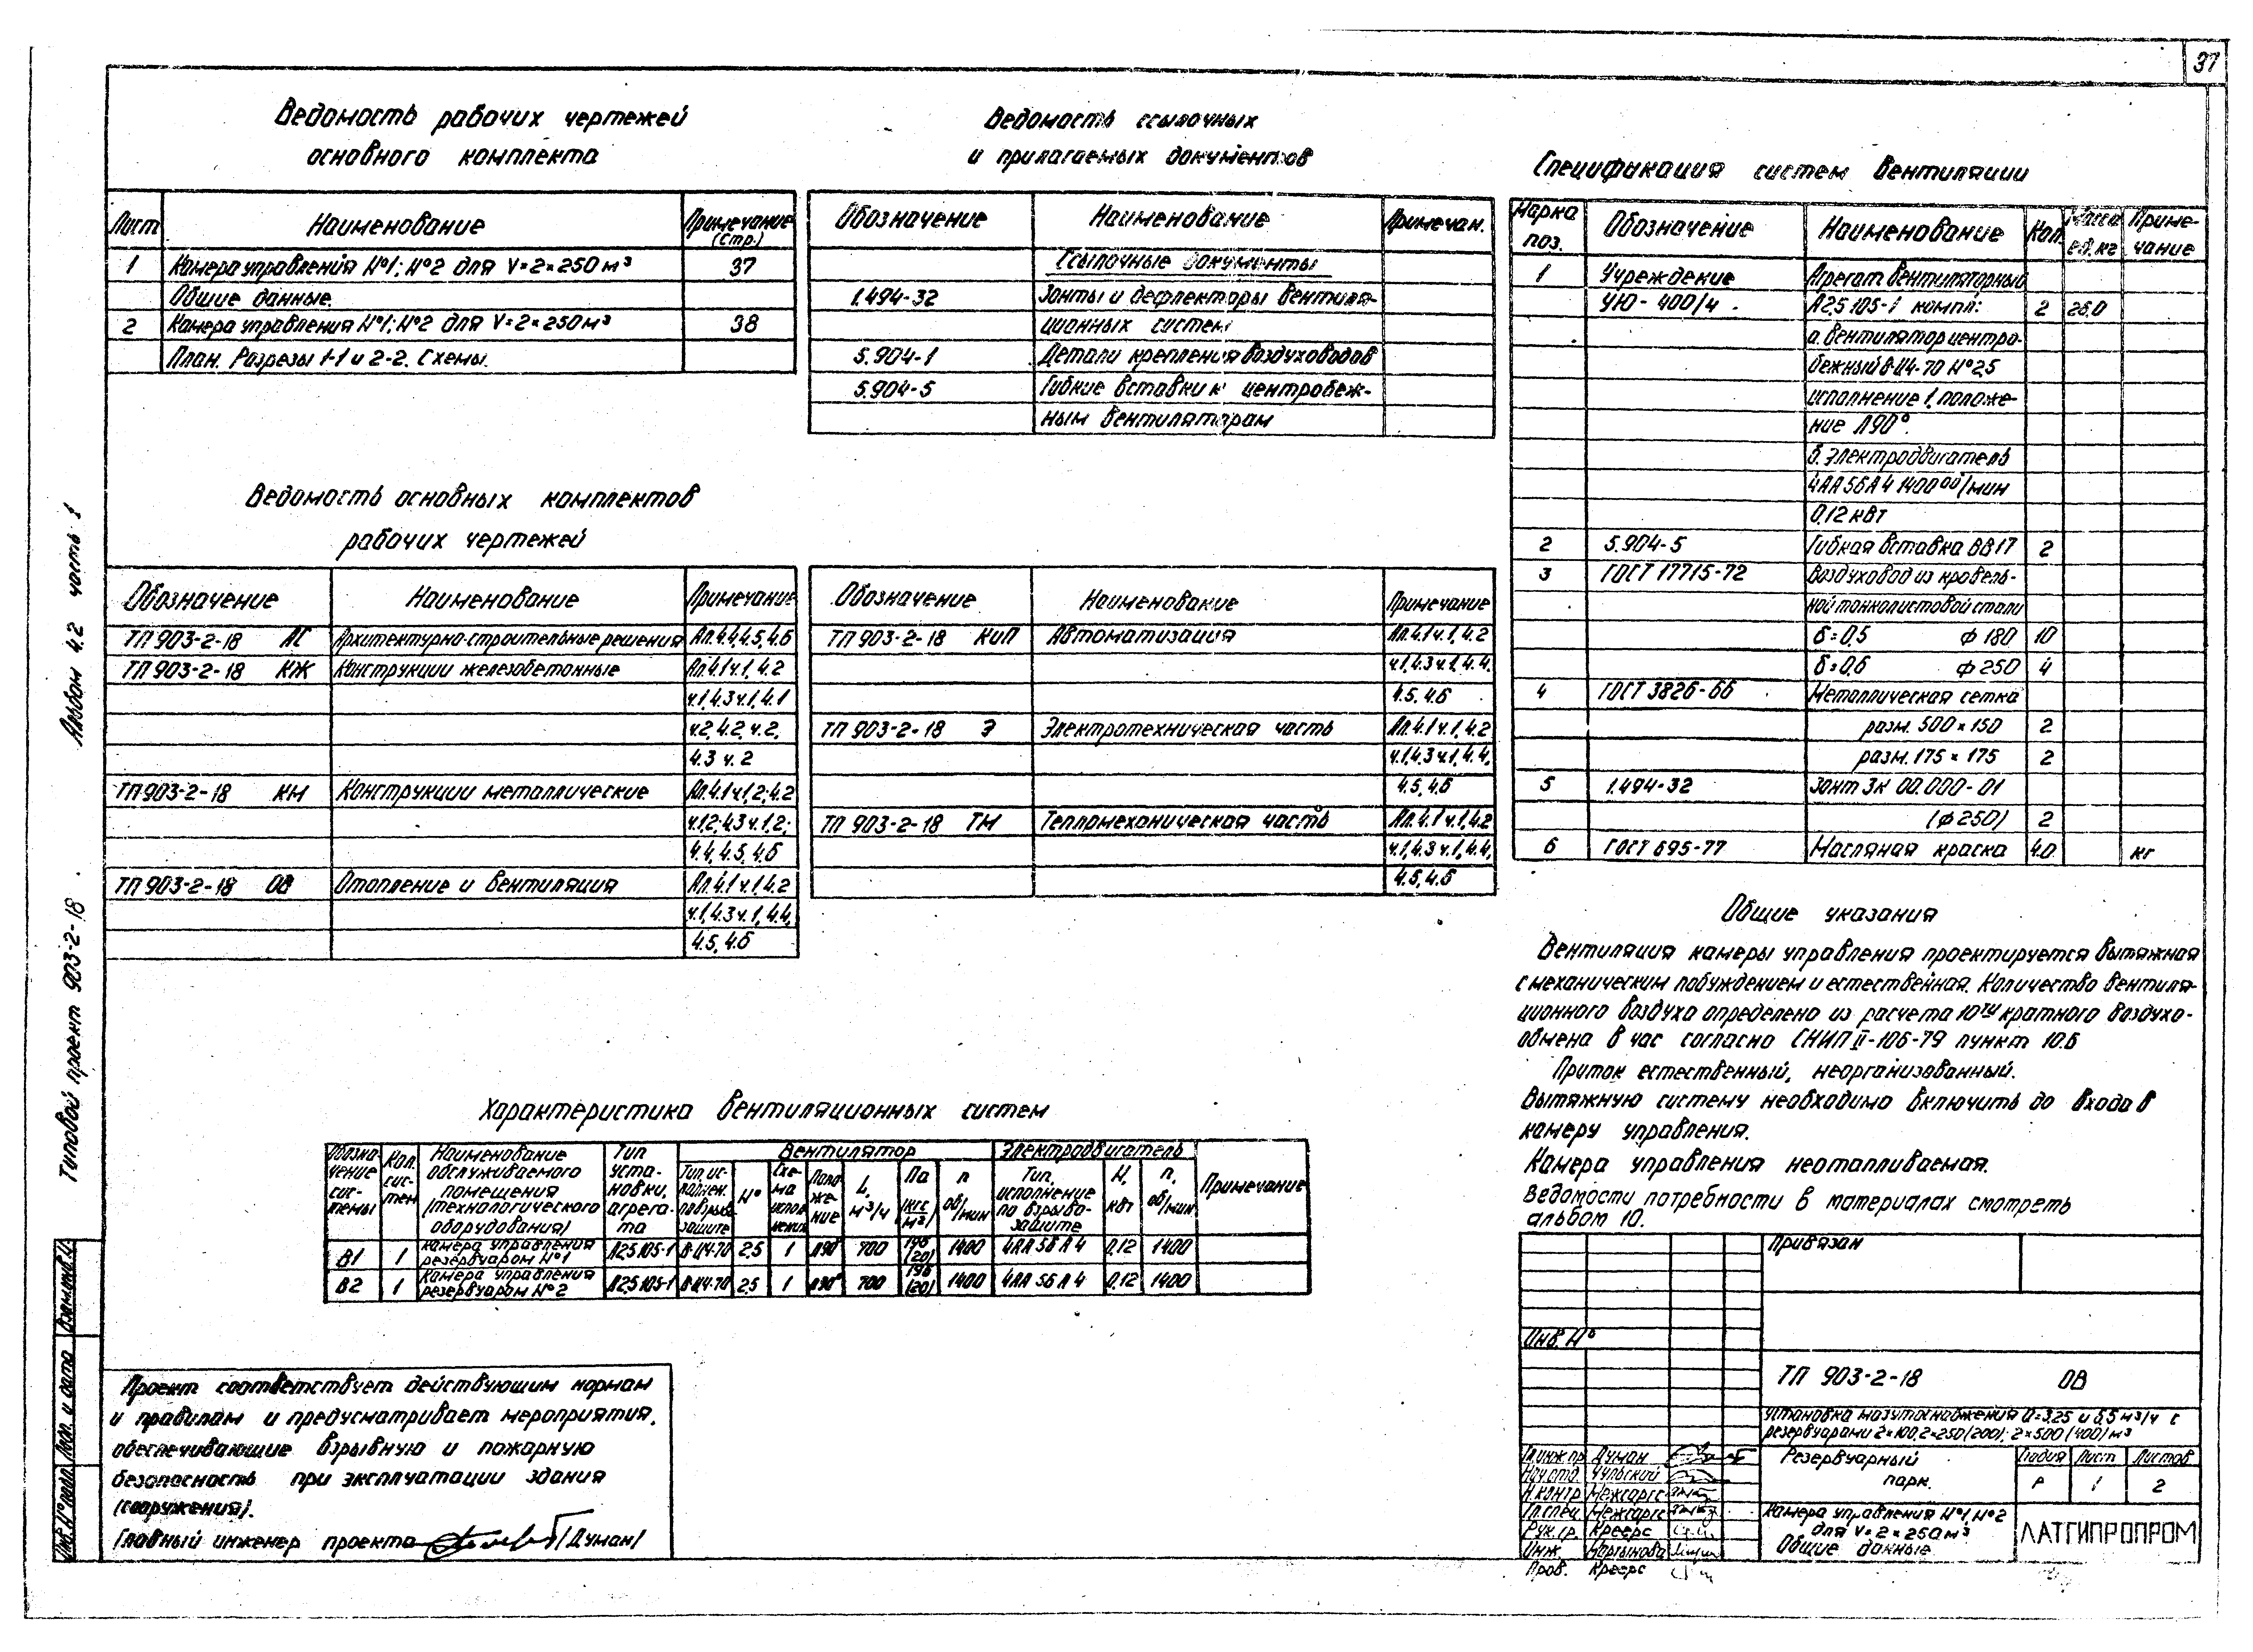 37
Ведомость рабочих чертежей
основного комплекта
Лист Наименование Примечание (стр.)
1 Камера управления №1; №2 для V=2×250 м³ 37
Общие данные.
2 Камера управления №1; №2 для V=2×250 м³ 38
План. Разрезы 1-1 и 2-2. Схемы.
Ведомость ссылочных
и прилагаемых документов
Обозначение Наименование Примечан.
Ссылочные документы
1.494-32 Зонты и дефлекторы вентиля-
ционных систем
5.904-1 Детали крепления воздуховодов
5.904-5 Гибкие вставки к центробеж-
ным вентиляторам
Ведомость основных комплектов
рабочих чертежей
Обозначение Наименование Примечание
ТП 903-2-18 АС Архитектурно-строительные решения Ал.4.4,4.5,4.6
ТП 903-2-18 КЖ Конструкции железобетонные Ал.4.1ч.1, 4.2
ч.1,4.3ч.1,4.1
ч.2, 4.2, ч.2,
4.3 ч.2
ТП 903-2-18 КМ Конструкции металлические Ал.4.1ч.1,2;4.2
ч.1,2;4.3ч.1,2;
4.4, 4.5, 4.6
ТП 903-2-18 ОВ Отопление и вентиляция Ал.4.1ч.1,4.2
ч.1,4.3ч.1,4.4,
4.5, 4.6
Обозначение Наименование Примечание
ТП 903-2-18 КиП Автоматизация Ал.4.1ч.1,4.2
ч.1,4.3ч.1,4.4,
4.5, 4.6
ТП 903-2-18 Э Электротехническая часть Ал.4.1ч.1,4.2
ч.1,4.3ч.1,4.4,
4.5, 4.6
ТП 903-2-18 ТМ Тепломеханическая часть Ал.4.1ч.1,4.2
ч.1,4.3ч.1,4.4,
4.5, 4.6
Спецификация систем вентиляции
Марка поз. Обозначение Наименование Кол. Масса ед.кг Приме-
чание
1 Учреждение Агрегат вентиляторный
УЮ-400/4 А2,5 105-1 компл: 2 26,0
а. вентилятор центро-
бежный В-Ц4-70 №2,5
исполнение 1, положе-
ние Л90°.
б. электродвигатель
4АА56А4 1400 об/мин
0,12 квт
2 5.904-5 Гибкая вставка ВВ17 2
3 ГОСТ 17715-72 Воздуховод из кровель-
ной тонколистовой стали
δ=0,5 ф 180 10
δ=0,6 ф 250 4
4 ГОСТ 3826-66 Металлическая сетка
разм. 500×150 2
разм. 175×175 2
5 1.494-32 Зонт ЗК 00.000-01
(ф250) 2
6 ГОСТ 695-77 Масляная краска 4.0 кг
Общие указания
Вентиляция камеры управления проектируется вытяжная
с механическим побуждением и естественная. Количество вентиля-
ционного воздуха определено из расчета 10ти кратного воздухо-
обмена в час согласно СНИП II-106-79 пункт 10.6
Приток естественный, неорганизованный.
Вытяжную систему необходимо включить до входа в
камеру управления.
Камера управления неотапливаемая.
Ведомости потребности в материалах смотреть
альбом 10.
Характеристика вентиляционных систем
Обозна-
чение
сис-
темы
Кол.
сис-
тем
Наименование
обслуживаемого
помещения
(технологического
оборудования)
Тип
уста-
новки,
агрега-
та
Вентилятор
Тип, ис-
полнен.
по взрыво-
защите
№
Схе-
ма
испол-
нения
Поло-
же-
ние
L,
м³/ч
Па
(кгс/м²)
n
об/мин
Электродвигатель
Тип,
исполнение
по взрыво-
защите
N,
квт
n,
об/мин
Примечание
В1 1 Камера управления резервуаром №1 А2,5 105-1 В-Ц4-70 2,5 1 Л90° 700 196 (20) 1400 4АА 56 А 4 0,12 1400
В2 1 Камера управления резервуаром №2 А2,5 105-1 В-Ц4-70 2,5 1 Л90° 700 196 (20) 1400 4АА 56 А 4 0,12 1400
Проект соответствует действующим нормам
и правилам и предусматривает мероприятия,
обеспечивающие взрывную и пожарную
безопасность при эксплуатации здания
(сооружения).
Главный инженер проекта /Думан/
Привязан
Инв. №
ТП 903-2-18 ОВ
Установка мазутоснабжения Q=3,25 и 6,5 м³/ч с
резервуарами 2×100, 2×250 (200); 2×500 (400) м³
Гл.инж.пр. Думан
Нач.отд. Чульский
Н.контр Межсаргс
Гл.спец. Межсаргс
Рук.гр. Креерс
Инж. Мартынова
Пров. Креерс
Резервуарный
парк.
Стадия Лист Листов
Р 1 2
Камера управления №1, №2
для V=2×250м³
Общие данные
ЛАТГИПРОПРОМ
Типовой проект 903-2-18. Альбом 4.2 часть 1
Инв.№ подл. Подп. и дата Взам.инв.№